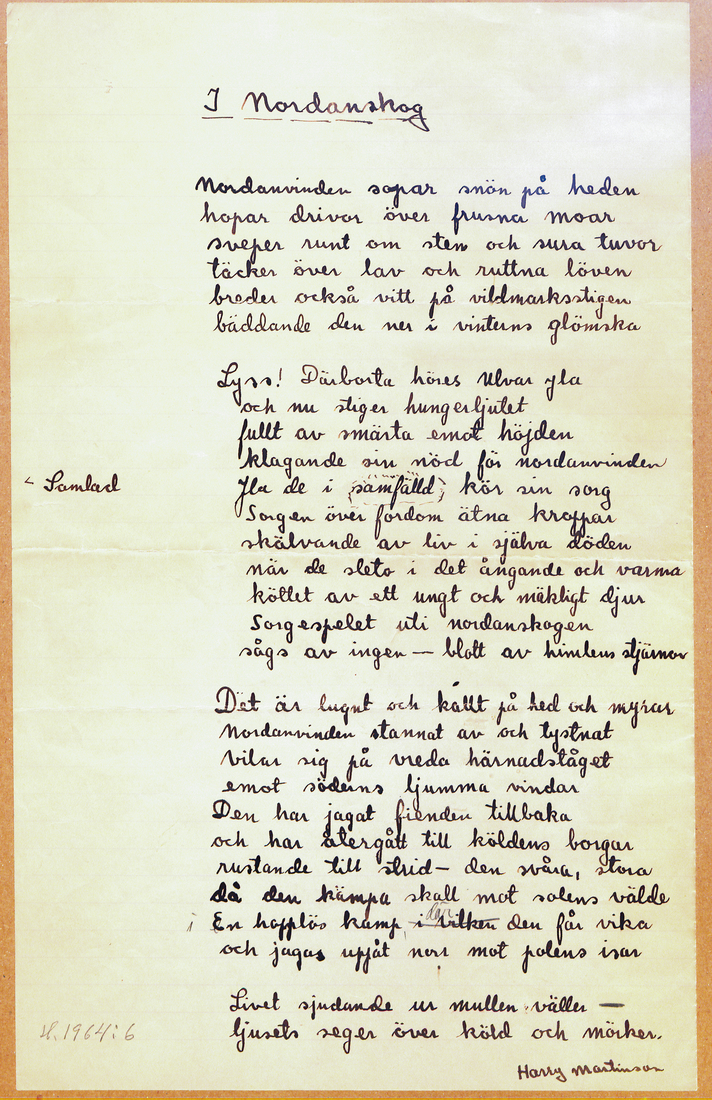 I Nordanskog
Nordanvinden sopar snön på heden
hopar drivor över frusna moar
sveper runt om sten och sura tuvor
täcker över lav och ruttna löven
breder också vitt på vildmarksstigen
bäddande den ner i vinterns glömska
Lyss! Därborta höres Ulvar yla
och nu stiger hungerljutet
fullt av smärta emot höjden
klagande sin nöd för nordanvinden
< Samlad
Yla de i samfälld kör sin sorg
Sorgen över fordom ätna kroppar
skälvande av liv i själva döden
när de sleto i det ångande och varma
köttet av ett ungt och mäktigt djur
Sorgespelet uti nordanskogen
sågs av ingen — blott av himlens stjärnor
Det är lugnt och kallt på hed och myrar
Nordanvinden stannat av och tystnat
Vilar sig på vreda härnadståget
emot söderns ljumma vindar
Den har jagat fienden tillbaka
och har återgått till köldens borgar
rustande till strid – den svåra, stora
då den kämpa skall mot solens välde
i En hopplös kamp i vilken där den får vika
och jagas uppåt norr mot polens isar
Livet sjudande ur mullen väller —
ljusets seger över köld och mörker.
Harry Martinson
H. 1964:6